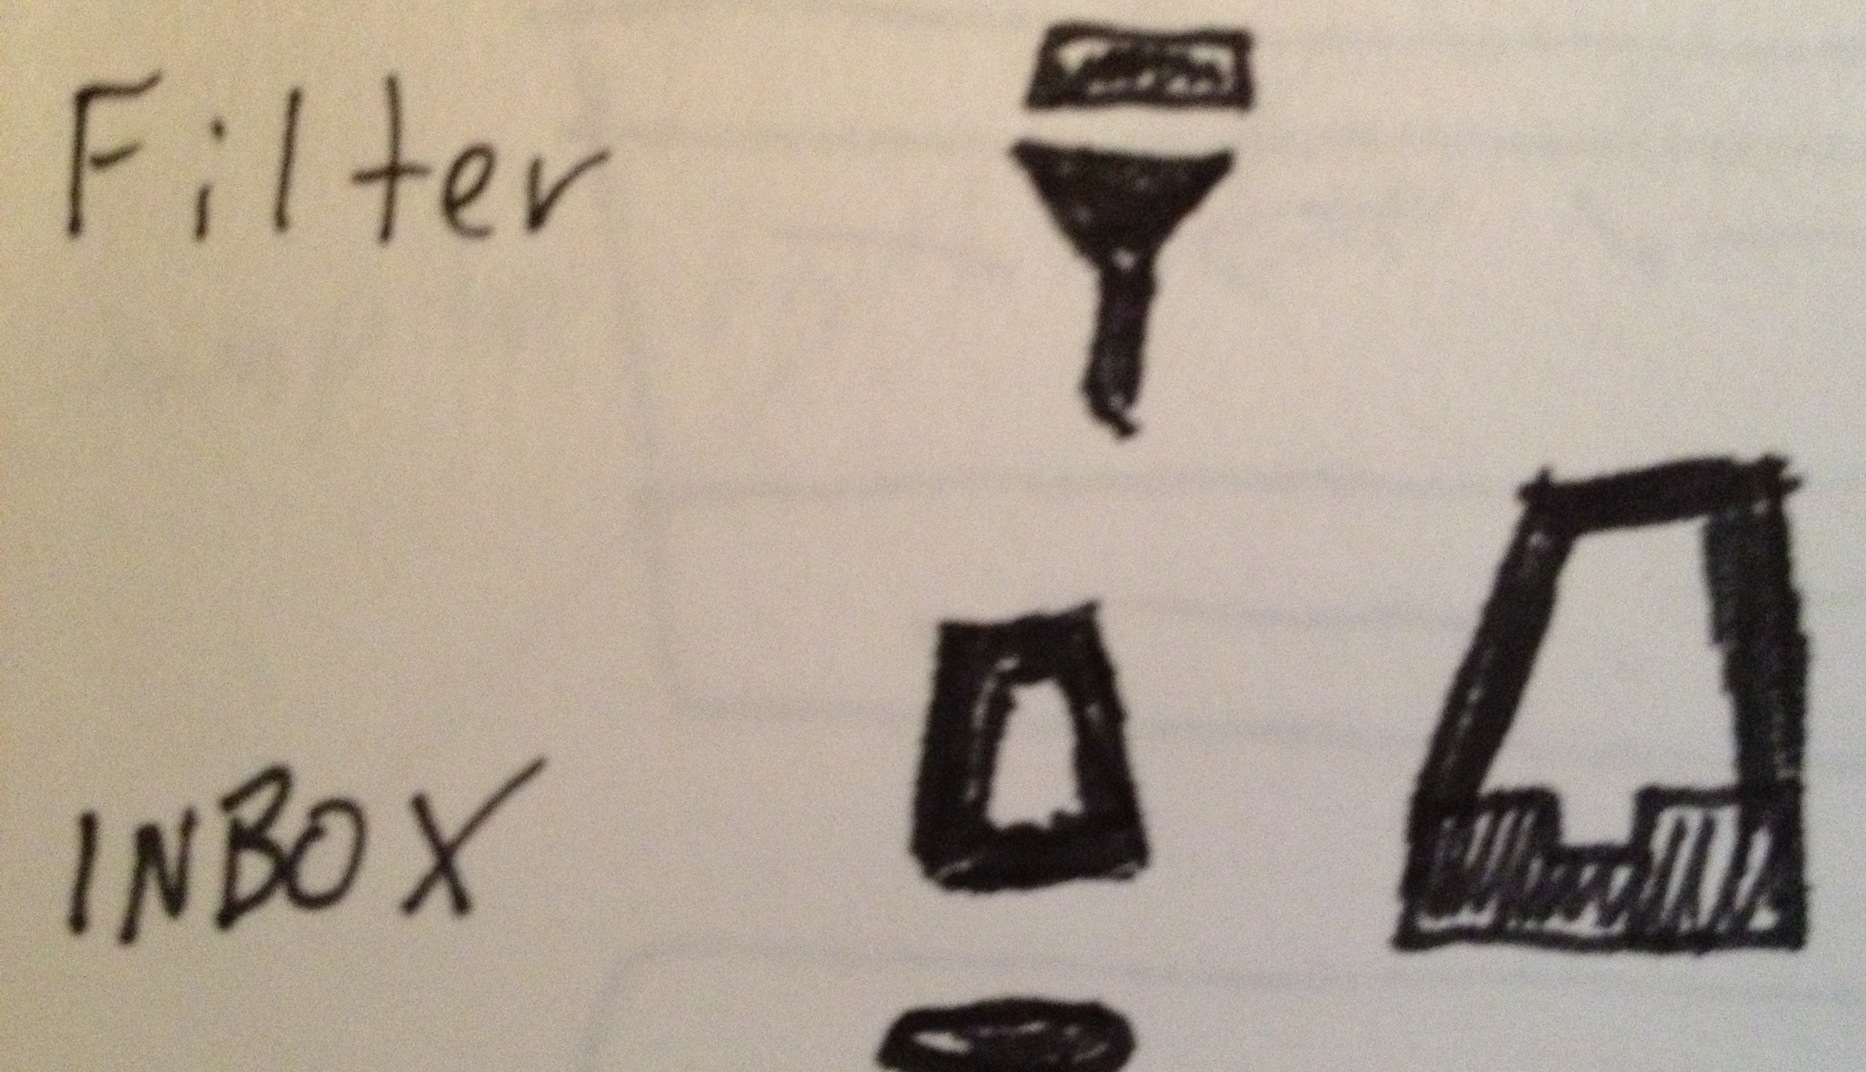 Filter
INBOX